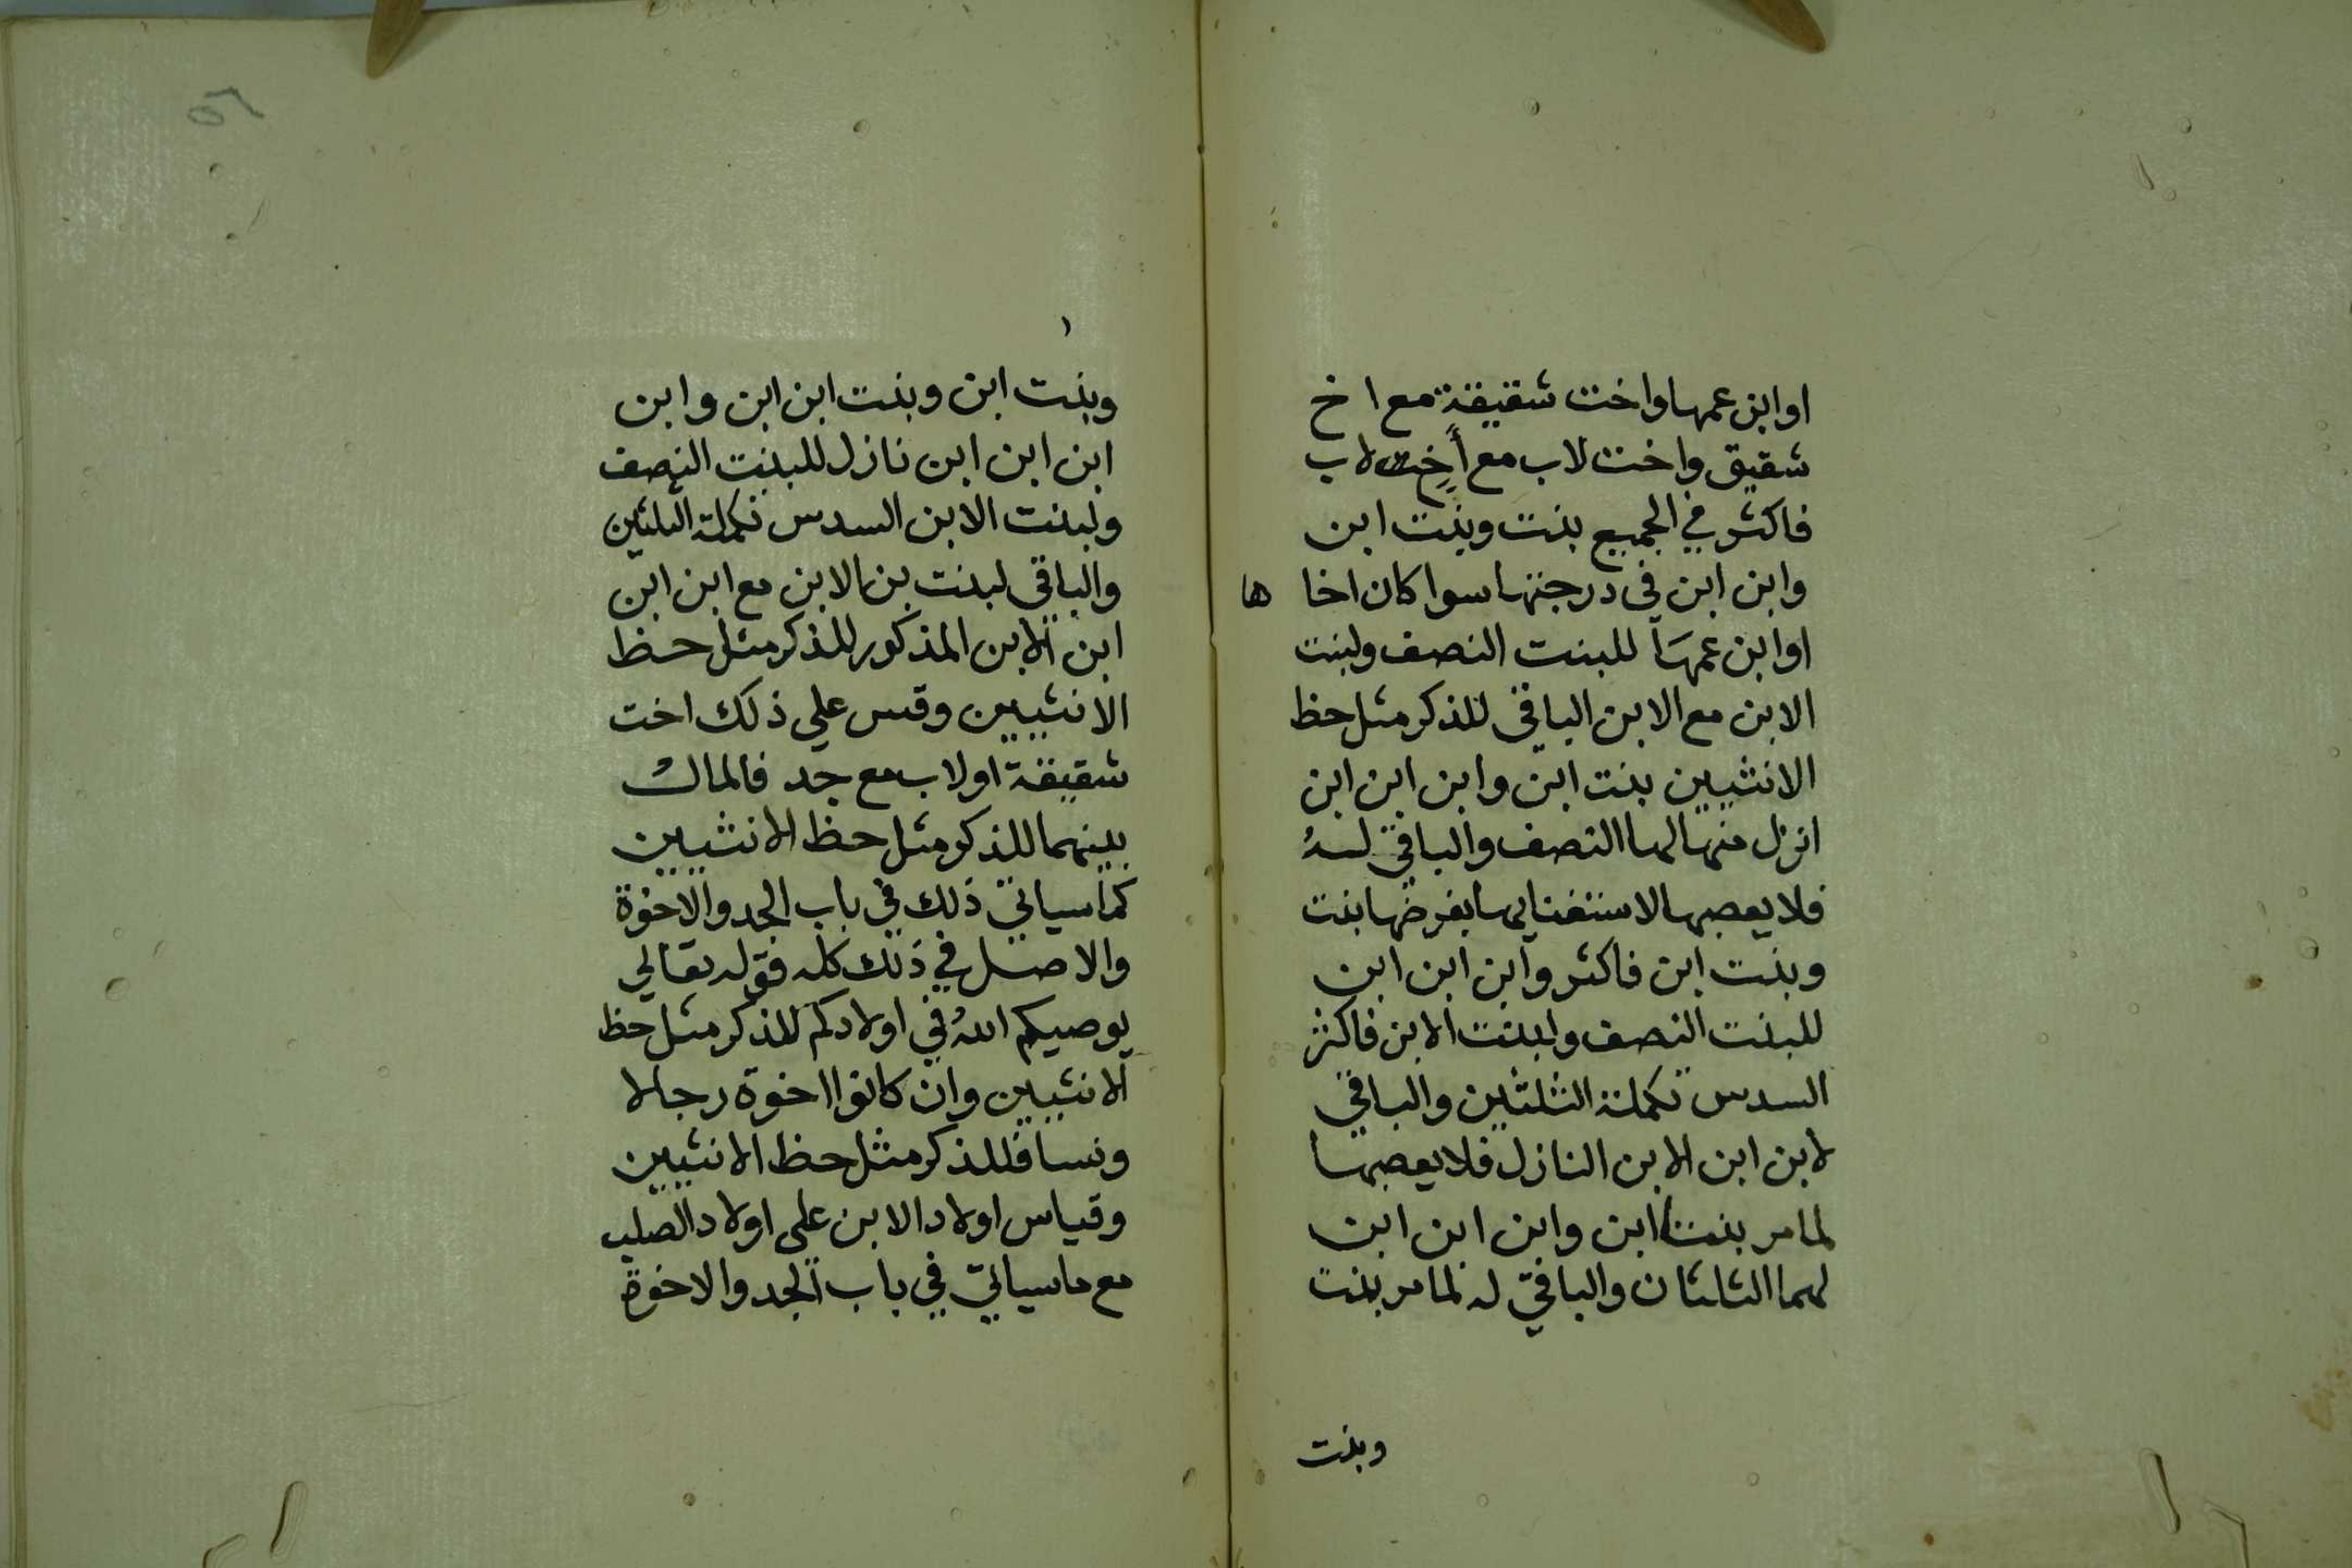 او ابن عمها واخت شقيقة مع اخ
شقيق واخت لاب مع أخ لاب
فاكثر في الجميع بنت وبنت ابن
وابن ابن في درجتها سوا كان اخا ها
او ابن عمها للبنت النصف ولبنت
الابن مع الابن الباقي للذكر مثل حظ
الانثيين بنت ابن وابن ابن ابن
انزل منها لها النصف والباقي له
فلا يعصبها لاستغنايها بفرضها بنت
وبنت ابن فاكثر وابن ابن ابن
للبنت النصف ولبنت الابن فاكثر
السدس تكملة الثلثين والباقي
لابن ابن الابن النازل فلا يعصبها
لما مر بنتا ابن وابن ابن ابن
لهما الثلثان والباقي له لما مر بنت
وبنت
٥٦
وبنت ابن وبنت ابن ابن وابن
ابن ابن ابن نازل للبنت النصف
ولبنت الابن السدس تكملة الثلثين
والباقي لبنت بن الابن مع ابن ابن
ابن الابن المذكور للذكر مثل حظ
الانثيين وقس علي ذلك اخت
شقيقة او لاب مع جد فالمال
بينهما للذكر مثل حظ الانثيين
كما سياتي ذلك في باب الجد والاخوة
والاصل في ذلك كله قوله تعالي
يوصيكم الله في اولادكم للذكر مثل حظ
الانثيين وان كانوا اخوة رجالا
ونسا فللذكر مثل حظ الانثيين
وقياس اولاد الابن على اولاد الصلب
مع ما سياتي في باب الجد والاخوة